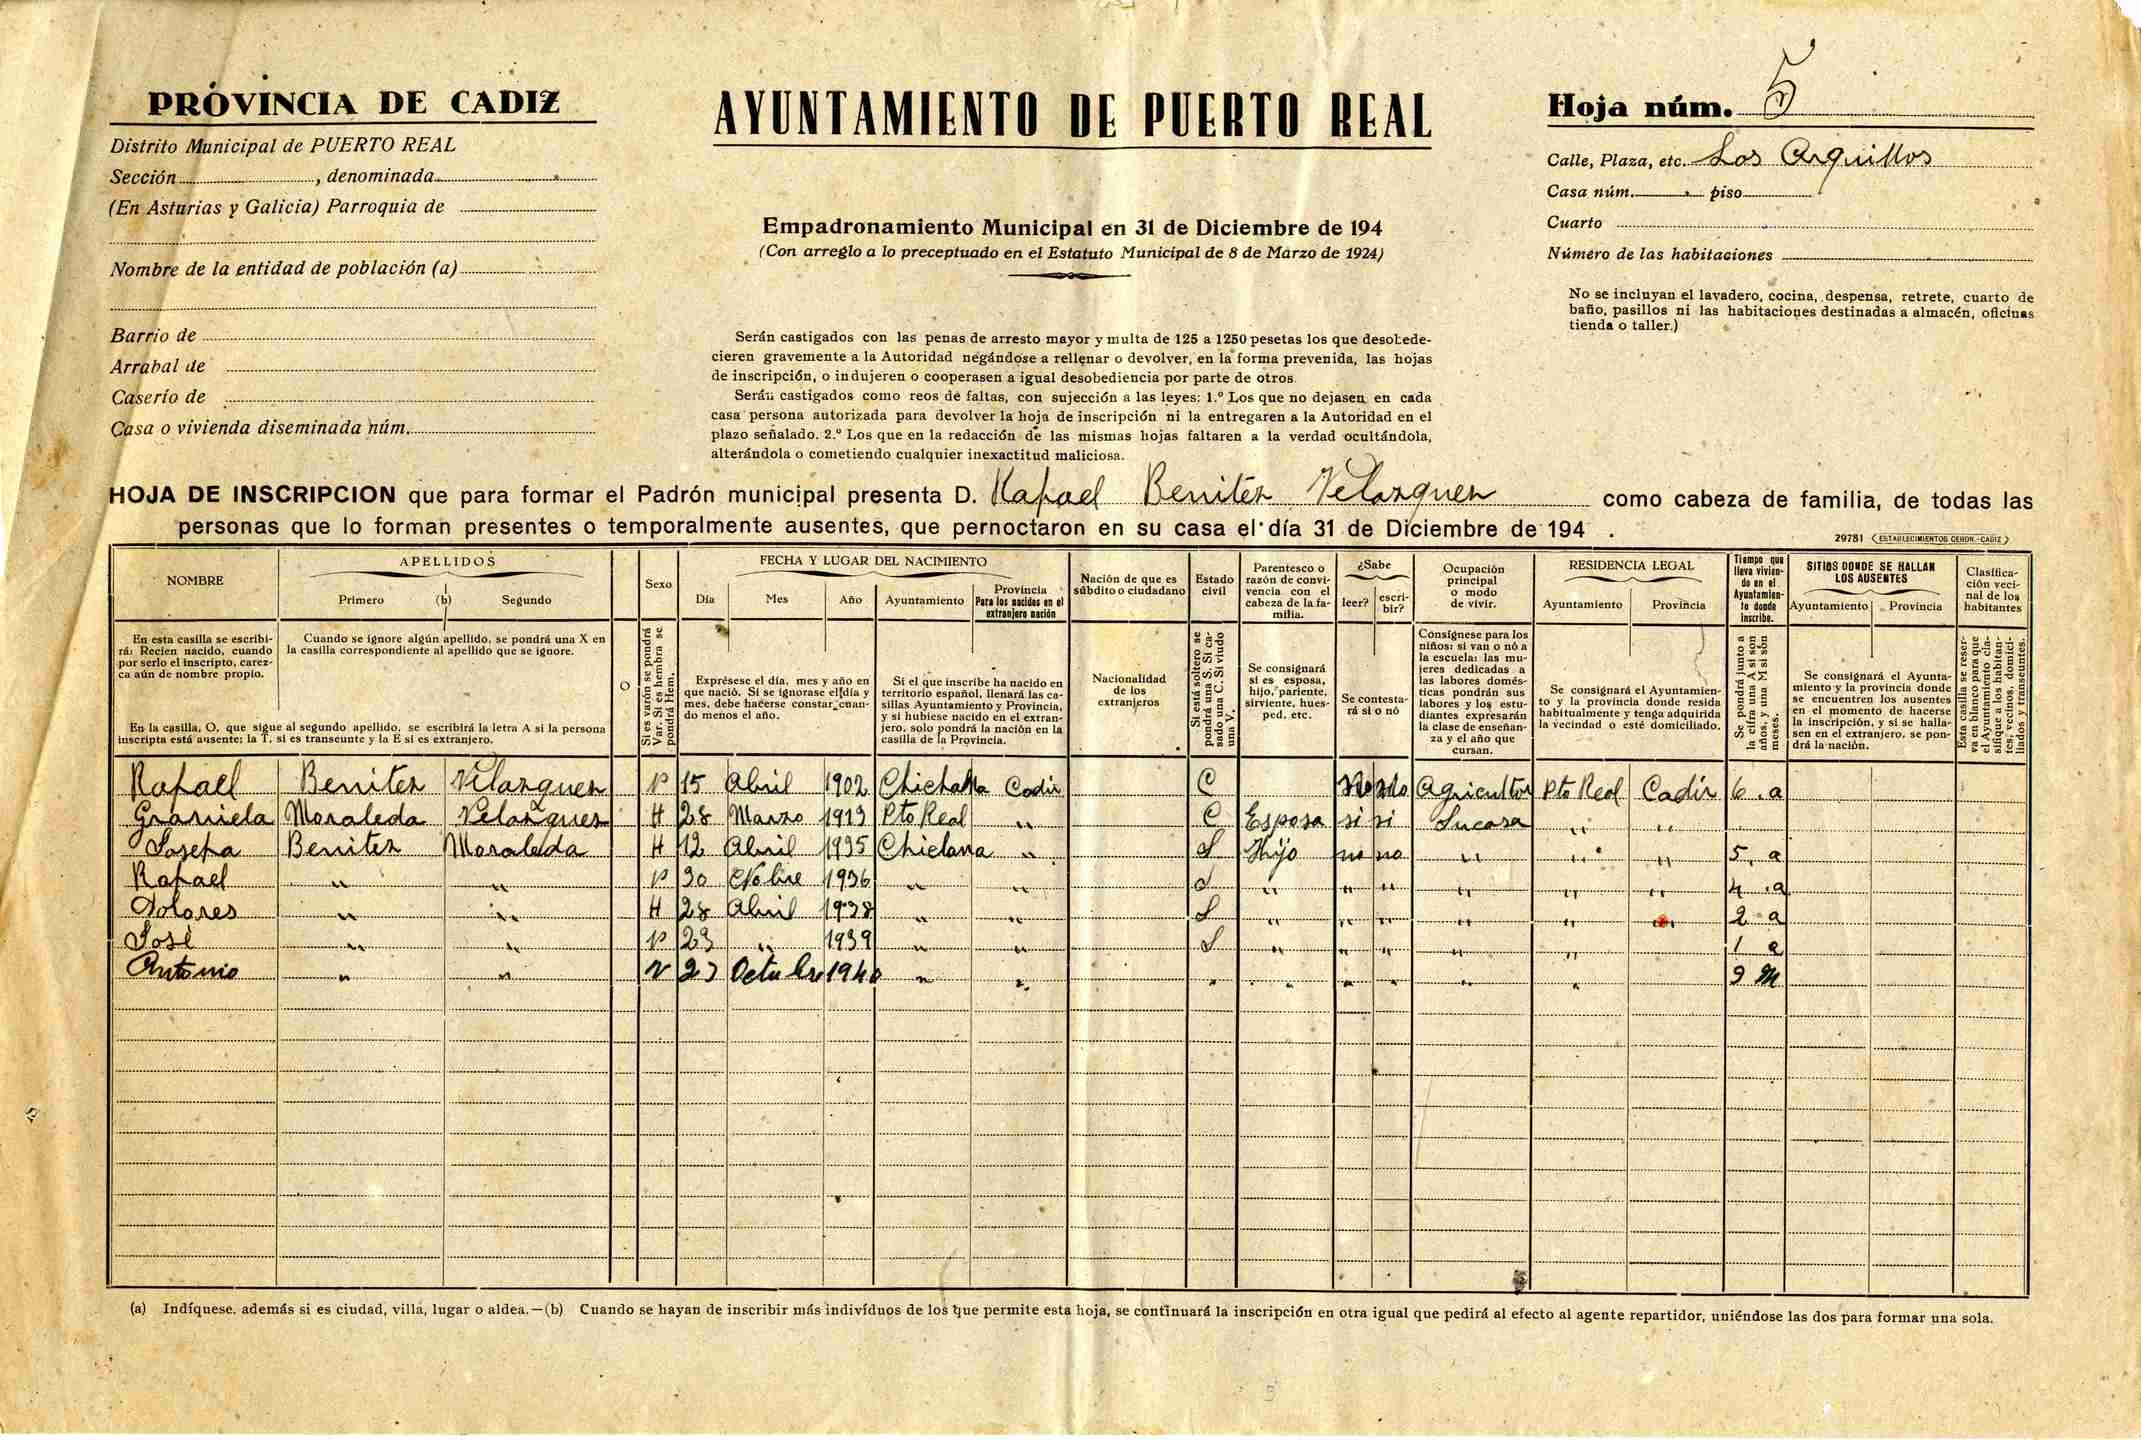 PROVINCIA DE CADIZ
Distrito Municipal de PUERTO REAL
Sección , denominada
(En Asturias y Galicia) Parroquia de
Nombre de la entidad de población (a)
Barrio de
Arrabal de
Caserío de
Casa o vivienda diseminada núm.
AYUNTAMIENTO DE PUERTO REAL
Empadronamiento Municipal en 31 de Diciembre de 194
(Con arreglo a lo preceptuado en el Estatuto Municipal de 8 de Marzo de 1924)
Serán castigados con las penas de arresto mayor y multa de 125 a 1250 pesetas los que desobede-
cieren gravemente a la Autoridad negándose a rellenar o devolver, en la forma prevenida, las hojas
de inscripción, o indujeren o cooperasen a igual desobediencia por parte de otros.
Serán castigados como reos de faltas, con sujección a las leyes: 1.º Los que no dejasen en cada
casa persona autorizada para devolver la hoja de inscripción ni la entregaren a la Autoridad en el
plazo señalado. 2.º Los que en la redacción de las mismas hojas faltaren a la verdad ocultándola,
alterándola o cometiendo cualquier inexactitud maliciosa.
Hoja núm. 5
Calle, Plaza, etc. Los Arquillos
Casa núm. piso
Cuarto
Número de las habitaciones
No se incluyan el lavadero, cocina, despensa, retrete, cuarto de
baño, pasillos ni las habitaciones destinadas a almacén, oficinas
tienda o taller.)
HOJA DE INSCRIPCION que para formar el Padrón municipal presenta D. Rafael Benitez Velazquez como cabeza de familia, de todas las
personas que lo forman presentes o temporalmente ausentes, que pernoctaron en su casa el día 31 de Diciembre de 194 .
29781 (ESTABLECIMIENTOS CERON.-CADIZ)
NOMBRE
APELLIDOS
Primero (b) Segundo
O
Sexo
FECHA Y LUGAR DEL NACIMIENTO
Día Mes Año Ayuntamiento
Provincia
Para los nacidos en el
extranjero nación
Nación de que es
súbdito o ciudadano
Estado
civil
Parentesco o
razón de convi-
vencia con el
cabeza de la fa-
milia.
¿Sabe
leer? escri-
bir?
Ocupación
principal
o modo
de vivir.
RESIDENCIA LEGAL
Ayuntamiento Provincia
Tiempo que
lleva vivien-
do en el
Ayuntamien-
to donde
inscribe.
SITIOS DONDE SE HALLAN
LOS AUSENTES
Ayuntamiento Provincia
Clasifica-
ción veci-
nal de los
habitantes
En esta casilla se escribi-
rá: Recien nacido, cuando
por serlo el inscripto, carez-
ca aún de nombre propio.
Cuando se ignore algún apellido, se pondrá una X en
la casilla correspondiente al apellido que se ignore.
En la casilla, O, que sigue al segundo apellido, se escribirá la letra A si la persona
inscripta está ausente; la T, si es transeunte y la E si es extranjero.
Si es varón se pondrá
Var. Si es hembra se
pondrá Hem.
Exprésese el día, mes y año en
que nació. Si se ignorase el día y
mes, debe hacerse constar cuan-
do menos el año.
Si el que inscribe ha nacido en
territorio español, llenará las ca-
sillas Ayuntamiento y Provincia,
y si hubiese nacido en el extran-
jero, solo pondrá la nación en la
casilla de la Provincia.
Nacionalidad
de los
extranjeros
Si está soltero se
pondrá una S. Si ca-
sado una C. Si viudo
una V.
Se consignará
si es esposa,
hijo, pariente,
sirviente, hues-
ped, etc.
Se contesta-
rá si o nó
Consígnese para los
niños: si van o nó a
la escuela: las mu-
jeres dedicadas a
las labores domés-
ticas pondrán sus
labores y los estu-
diantes expresarán
la clase de enseñan-
za y el año que
cursan.
Se consignará el Ayuntamien-
to y la provincia donde resida
habitualmente y tenga adquirida
la vecindad o esté domiciliado.
Se pondrá junto a
la cifra una A si son
años y, una M si són
meses.
Se consignará el Ayunta-
miento y la provincia donde
se encuentren los ausentes
en el momento de hacerse
la inscripción, y si se halla-
sen en el extranjero, se pon-
drá la nación.
Esta casilla se reser-
va en blanco para que
el Ayuntamiento cla-
sifique a los habitan-
tes, vecinos, domici-
liados y transeuntes.
Rafael Benitez Velazquez V 15 Abril 1902 Chiclana Cadiz C No No Agricultor Pto Real Cadiz 6 a
Graniela Moraleda Velazquez H 28 Marzo 1913 Pto Real " C Esposa si si Sucasa " " "
Josefa Benitez Moraleda H 12 Abril 1935 Chiclana " S Hijo no no " " " 5 a
Rafael " " V 30 Nobre 1936 " " S " " " " " " 4 a
Dolores " " H 28 Abril 1938 " " S " " " " " " 2 a
José " " V 23 " 1939 " " S " " " " " " 1 a
Antonio " " V 27 Octubre 1940 " " " " " " " " 9 M
(a) Indíquese. además si es ciudad, villa, lugar o aldea.—(b) Cuando se hayan de inscribir más indivíduos de los que permite esta hoja, se continuará la inscripción en otra igual que pedirá al efecto al agente repartidor, uniéndose las dos para formar una sola.